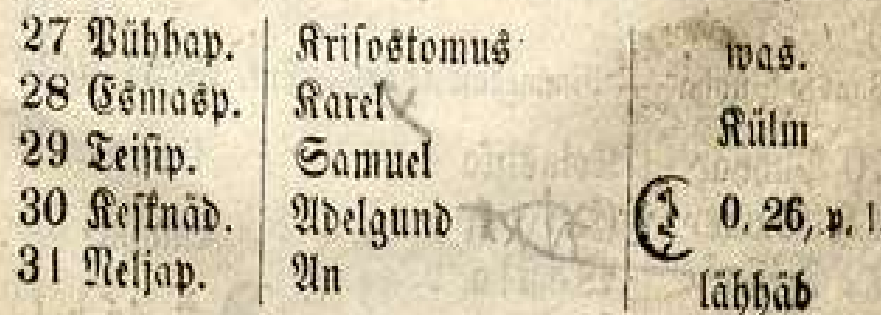 27 Pühhap. Krisostomus was.
28 Esmasp. Karel
Külm
29 Teisip. Samuel
30 Kesknäd. Adelgund 0, 26, p. l.
31 Neljap. An lähhäb